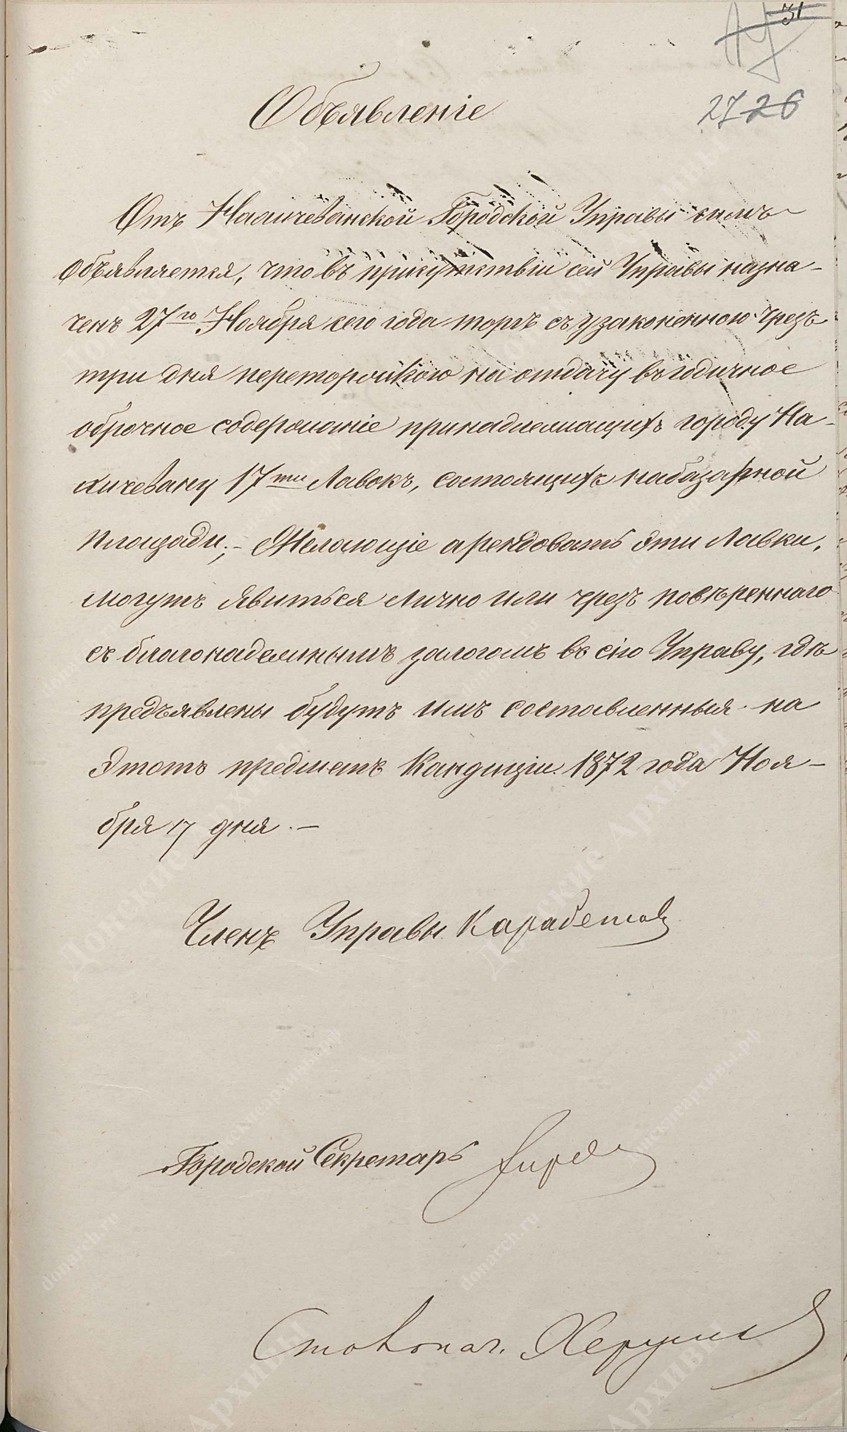 27 26
Объявленіе
Отъ Нахичеванской Городской Управы симъ
объявляется, что въ присутствіи сей Управы назна-
ченъ 27го Ноября сего года торгъ съ узаконенною чрезъ
три дня переторжкою на отдачу въ годичное
оброчное содержаніе принадлежащихъ городу На-
хичевану 17ти Лавокъ, состоящихъ на базарной
площади; - Желающіе арендовать эти Лавки,
могутъ явиться лично или чрезъ повѣреннаго
съ благонадежнымъ залогомъ въ сію Управу, гдѣ
предъявлены будутъ имъ составленныя на
этотъ предметъ Кандиціи. 1872 года Ноя-
бря 7 дня. -
Членъ Управы Карабетов
Городской Секретарь
Столонач.